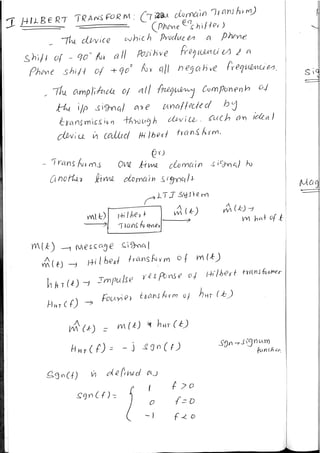 I HILBERT TRANSFORM: (Time domain Transform)
(Phase Shifter)
- The device which Produces a phase
shift of -90° for all Positive frequencies & a
Phase shift of +90° for all negative frequencies.
- The amplitude of all frequency Components of
the i/p signal are unaffected by
transmission through device. such an ideal
device is called Hilbert transform.
(or)
- Transforms One time domain signal to
another time domain signals
LTI System
m(t) → Hilbert Transformer → m̂(t)
m̂(t) → m hat of t
m(t) → Message Signal
m̂(t) → Hilbert transform of m(t)
hHT(t) → Impulse response of Hilbert transformer
HHT(f) → Fourier transform of hHT(t)
m̂(t) = m(t) * hHT(t)
HHT(f) = -j sgn(f)
sgn → signum function
Sgn(f) is defined as
sgn(f) = { 1 f > 0
0 f = 0
-1 f < 0
Sig
Mag